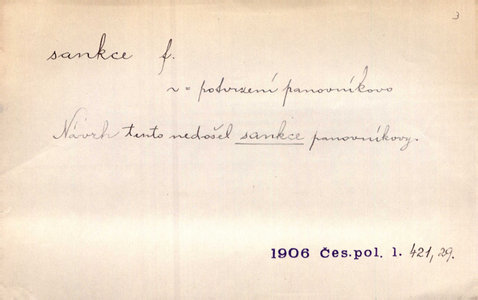 3
sankce f.
~ = potvrzení panovníkovo
Návrh tento nedošel sankce panovníkovy.
1906 Čes.pol. 1. 421,29.